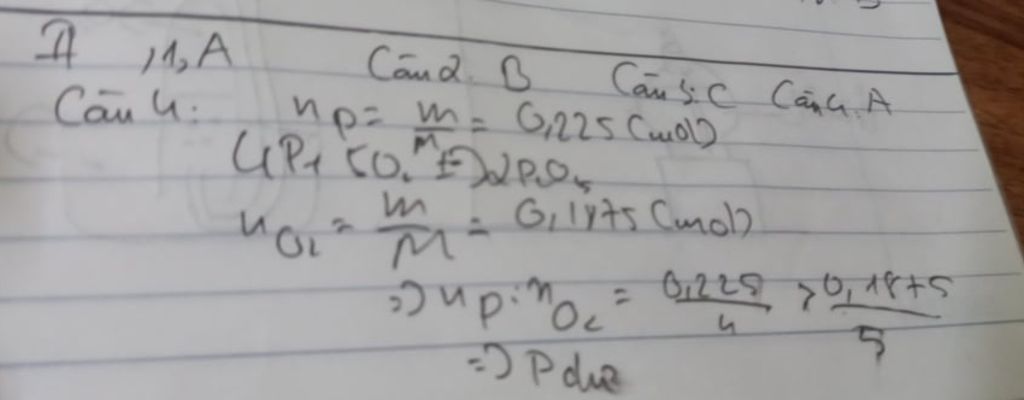 II ,1, A Câu 2. B Câu 3: C Câu 4. A
Câu 4: n P = m/M = 0,225 (mol)
4P + 5O₂ t° → 2P₂O₅
n O₂ = m/M = 0,1875 (mol)
=> n P : n O₂ = 0,225/4 > 0,1875/5
=> P dư